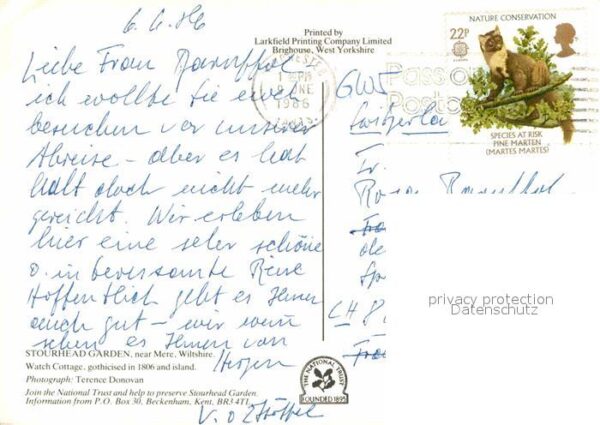 6.6.86
Printed by
Larkfield Printing Company Limited
Brighouse, West Yorkshire
Liebe Frau
ich wollte Sie
besuchen vor unserer
Abreise – aber es hat
halt doch nicht mehr
gereicht. Wir erleben
hier eine sehr schöne
Reise
Hoffentlich geht es Ihnen
auch gut – wir
es Ihnen von
Herzen
JUNE
1986
NATURE CONSERVATION
22P
SPECIES AT RISK
PINE MARTEN
(MARTES MARTES)
Switzerland
Fr.
CH 8
privacy protection
Datenschutz
STOURHEAD GARDEN, near Mere, Wiltshire.
Watch Cottage, gothicised in 1806 and island.
Photograph: Terence Donovan
Join the National Trust and help to preserve Stourhead Garden.
Information from P.O. Box 30, Beckenham, Kent, BR3 4TL
THE NATIONAL TRUST
FOUNDED 1895